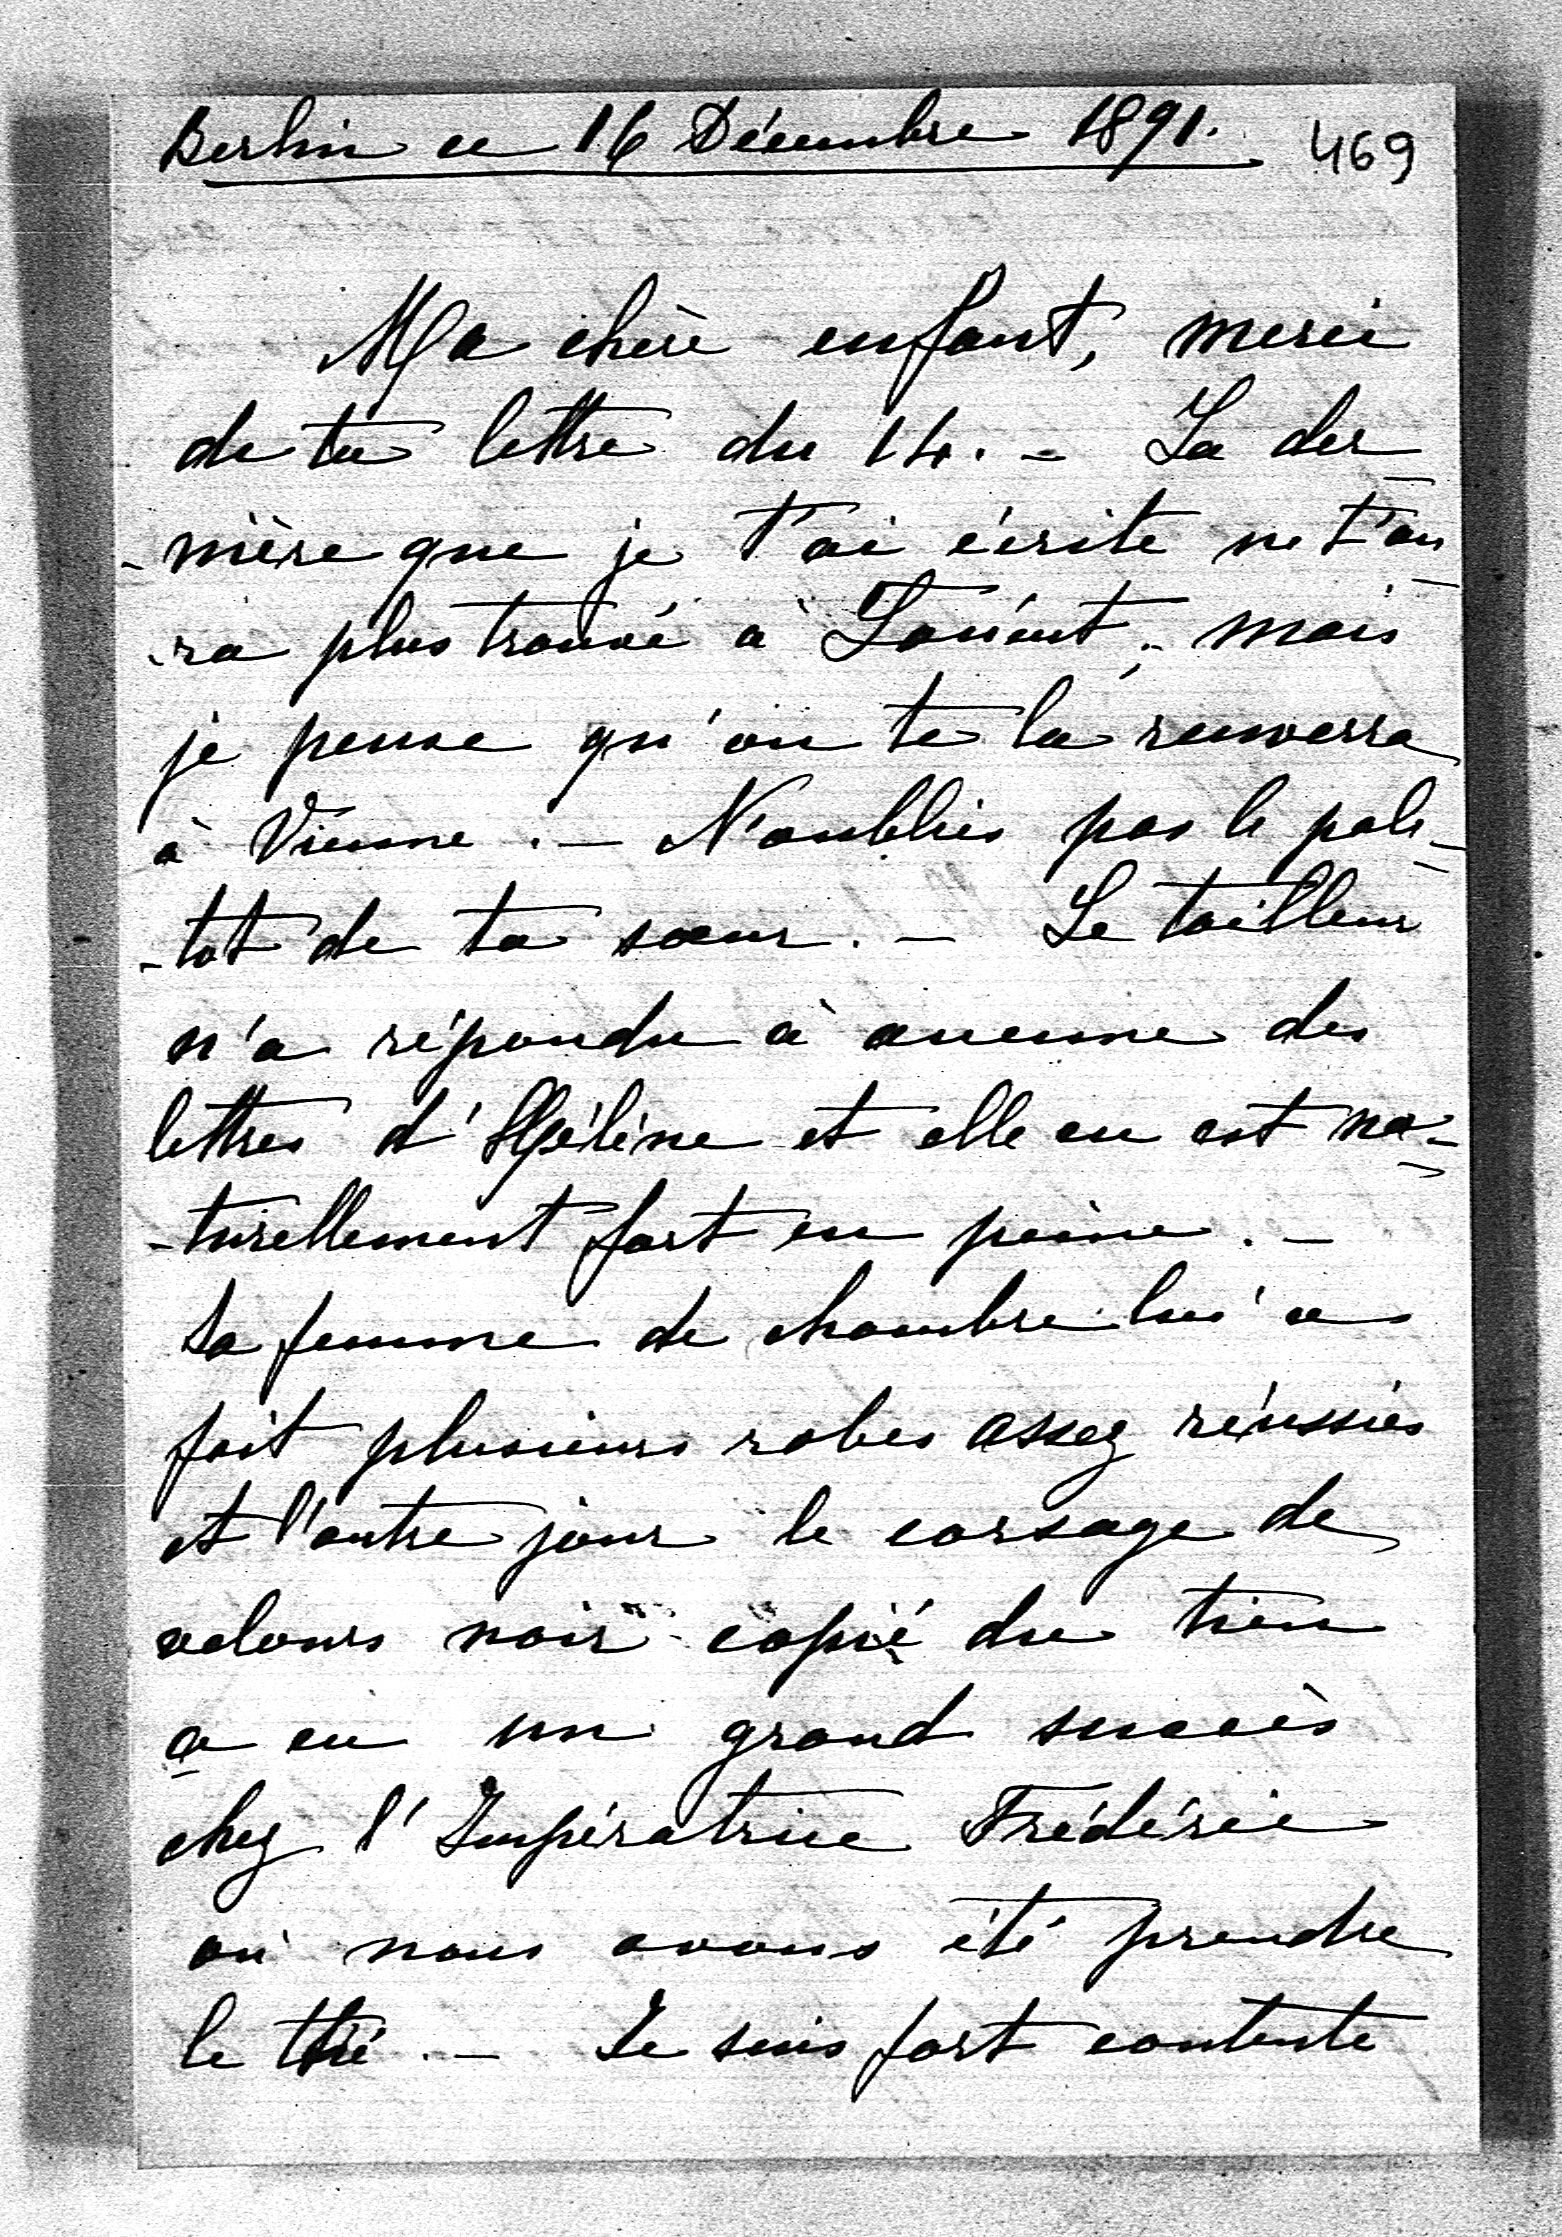 Berlin ce 16 Décembre 1891. 469
Ma chère enfant, merci
de ta lettre du 14. - La der
-nière que je t'ai écrite ne t'au
-ra plus trouvé à Lancut, - mais
je pense qu'on te la renverra
à Vienne. - N'oublies pas le pale-
-tot de ta sœur. - Le tailleur
n'a répondu à aucune des
lettres d'Hélène et elle en est na-
-turellement fort en peine. -
Sa femme de chambre lui a
fait plusieurs robes assez réussies
et l'autre jour le corsage de
velours noir copié du tien
a eu un grand succès
chez l'Impératrice Frédéric
où nous avons été prendre
le thé. - Je suis fort contente